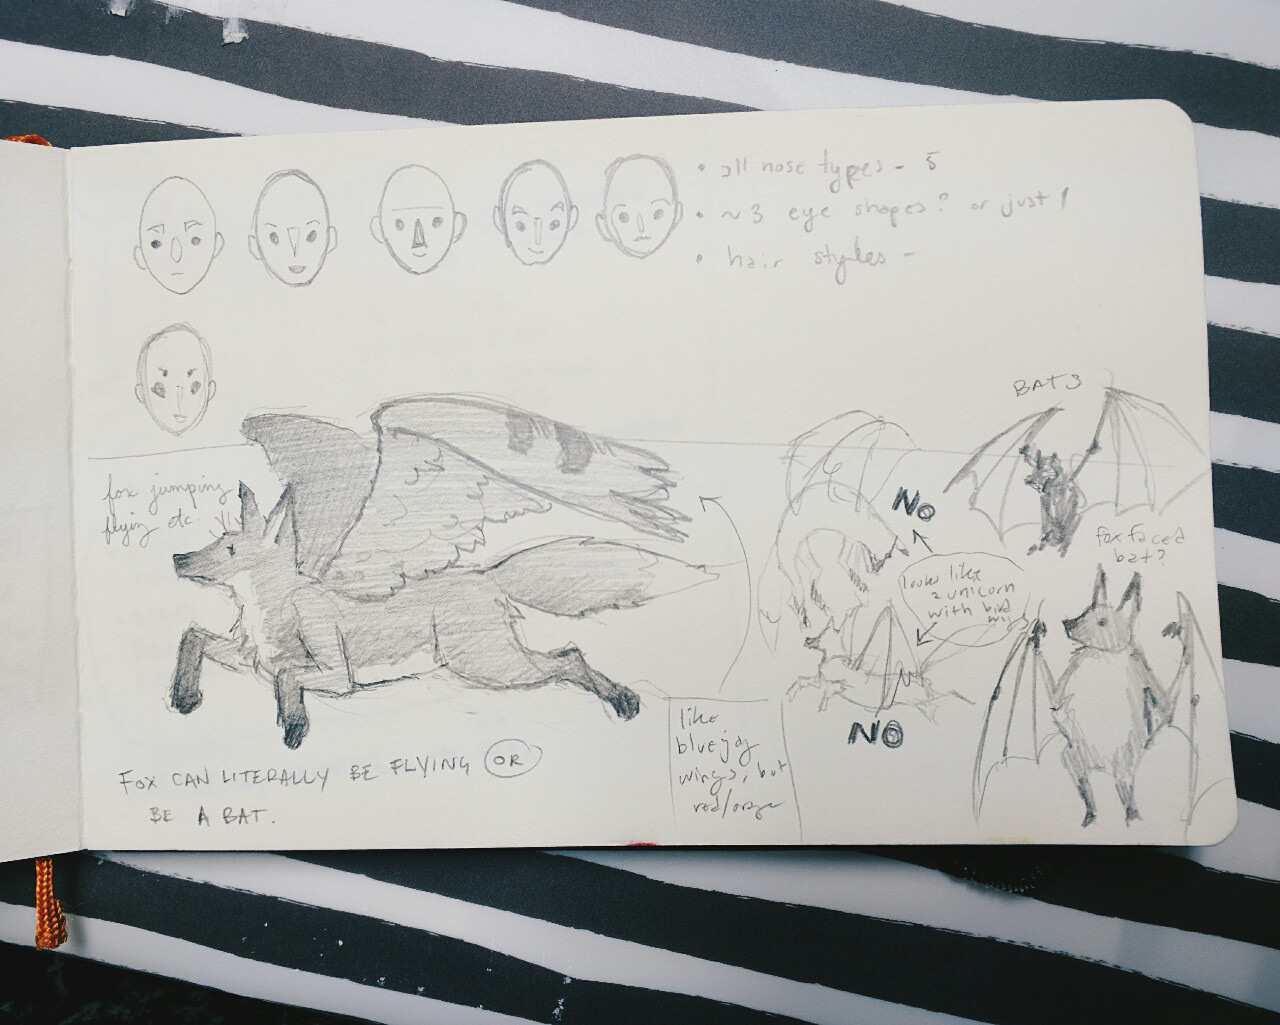 • all nose types - 5
• ~3 eye shapes? or just 1
• hair styles -
fox jumping
flying etc.
BATS
NO
looks like
a unicorn
with bird
fox faced
bat?
NO
like
bluejay
wings, but
red/orange
FOX CAN LITERALLY BE FLYING OR
BE A BAT.